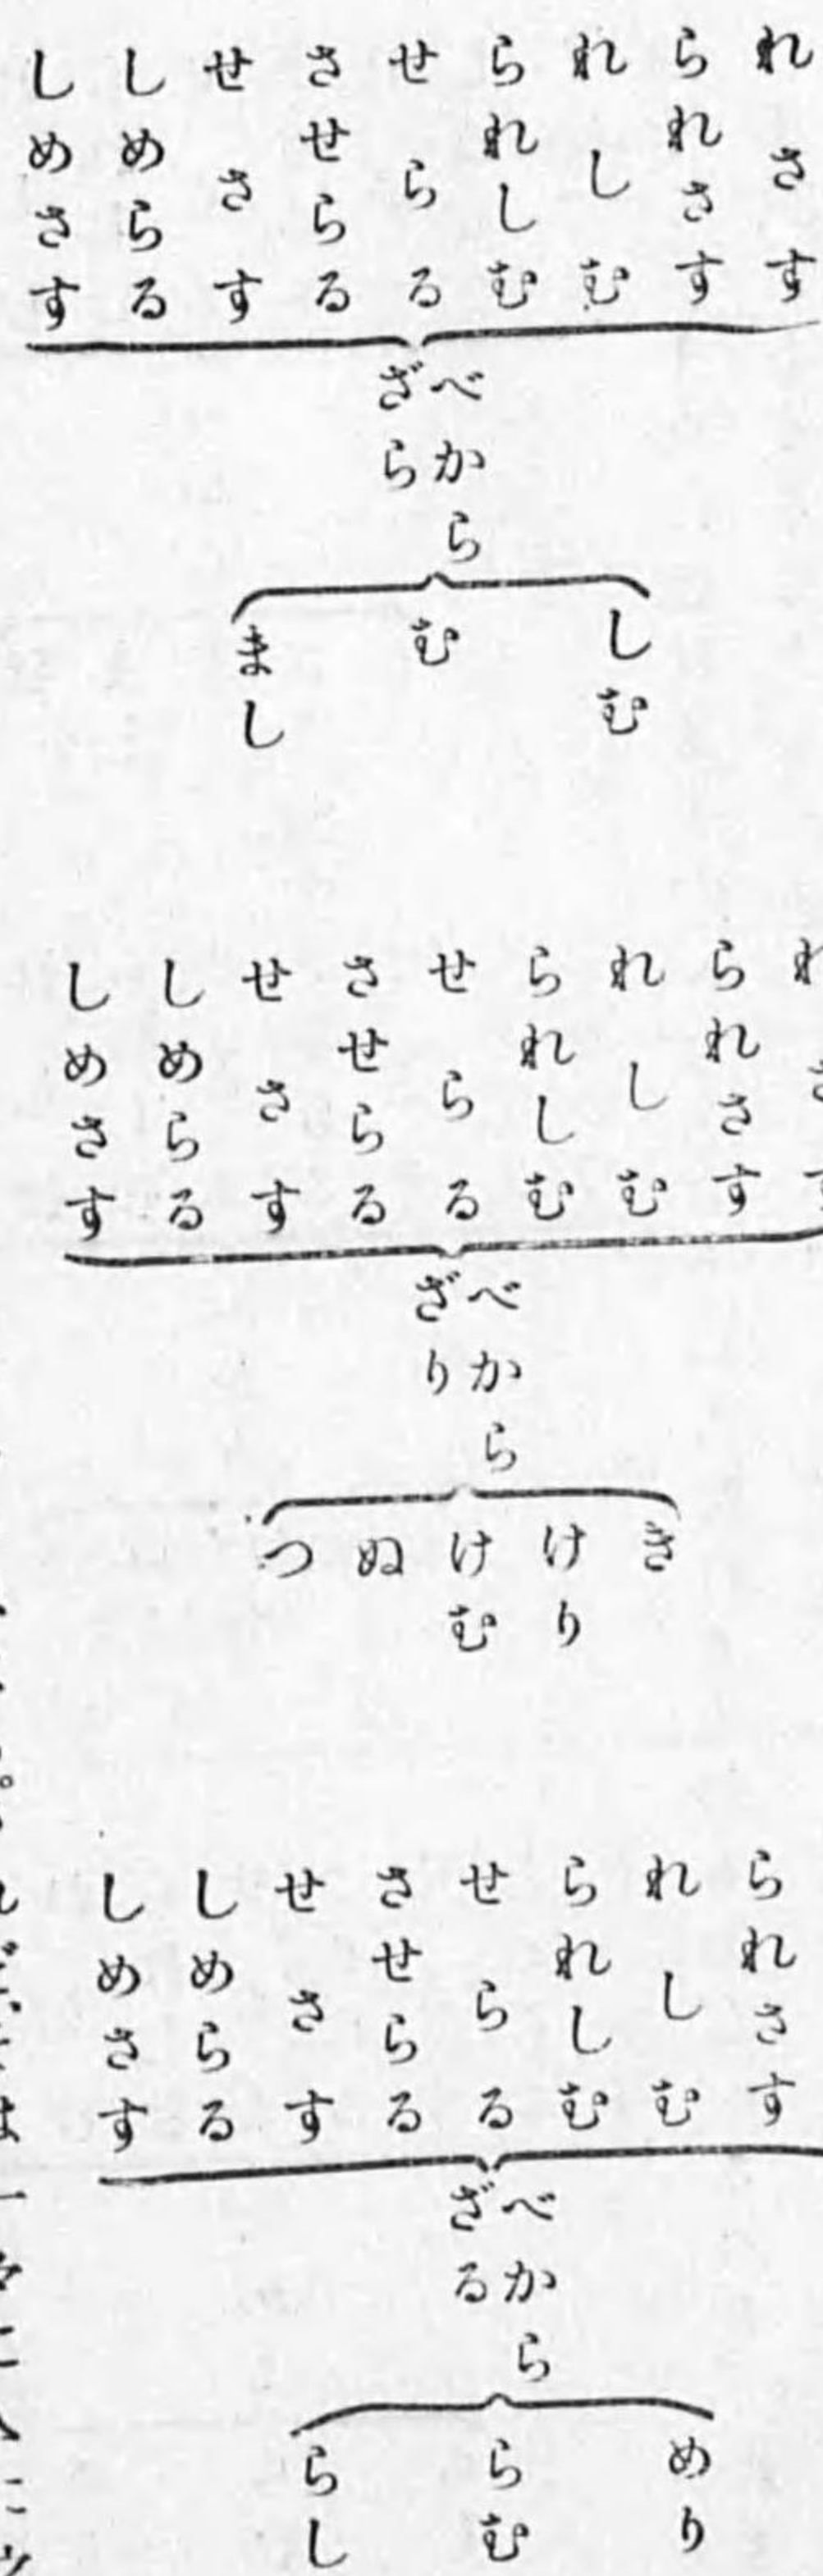 れさす
られさす
れしむ
られしむ
せらる
させらる
せさす
しめらる
しめさす
べから
ざら
しむ
む
まし
られさす
れしむ
られしむ
せらる
させらる
せさす
しめらる
しめさす
べから
ざり
き
けり
けむ
ぬ
つ
られさす
れしむ
られしむ
せらる
させらる
せさす
しめらる
しめさす
べから
ざる
めり
らむ
らし